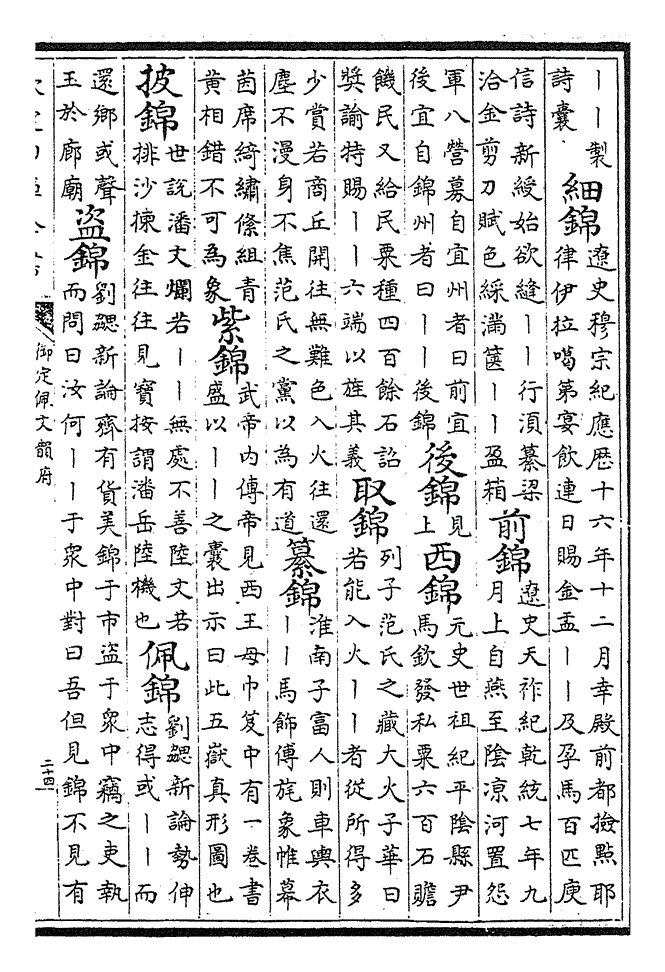 ｜｜製
詩囊
細錦
遼史穆宗紀應厯十六年十二月幸殿前都撿㸃耶
律伊拉噶第宴飲連日賜金盂｜｜及孕馬百匹庾
信詩新綬始欲縫｜｜行須纂梁
洽金剪刀賦色綵滿篋｜｜盈箱
前錦
遼史天祚紀乾統七年九
月上自燕至陰凉河置怨
軍八營募自宜州者曰前宜
後宜自錦州者曰｜｜後錦
後錦
見
上
西錦
元史世祖紀平陰縣尹
馬欽發私粟六百石贍
饑民又給民粟種四百餘石詔
獎諭特賜｜｜六端以旌其義
取錦
列子范氏之藏大火子華曰
若能入火｜｜者從所得多
少賞若商丘開往無難色入火往還
塵不漫身不焦范氏之黨以為有道
纂錦
淮南子富人則車輿衣
｜｜馬飾傅旄象帷幕
茵席綺繡絛組青
黃相錯不可為象
紫錦
武帝内傳帝見西王母巾笈中有一卷書
盛以｜｜之囊出示曰此五嶽真形圖也
披錦
世說潘文爛若｜｜無處不善陸文若
排沙揀金往往見寶按謂潘岳陸機也
佩錦
劉勰新論勢伸
志得或｜｜而
還鄉或聲
玉於廊廟
盜錦
劉勰新論齊有貨美錦于市盜于衆中竊之吏執
而問曰汝何｜｜于衆中對曰吾但見錦不見有
御定佩文韻府
二十四